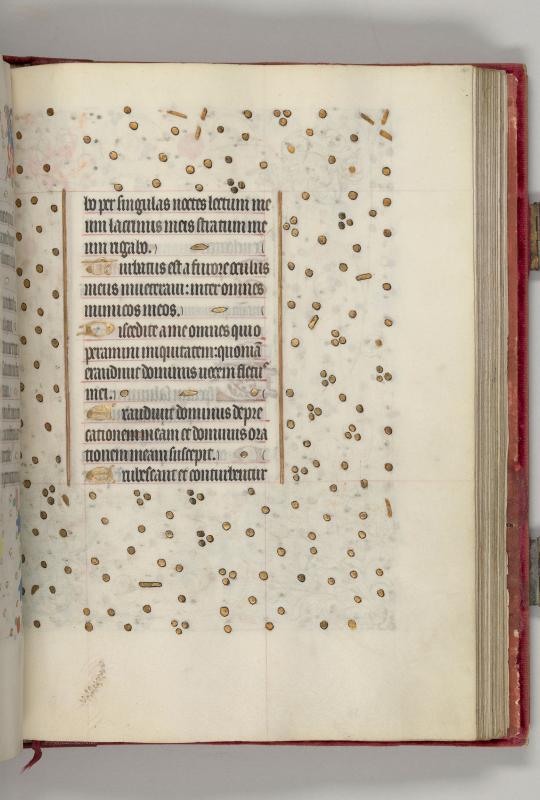 bo per singulas noctes lectum me
um lacrimis meis stratum me
um rigabo.
urbatus est a furore oculus
meus inueteraui: inter omnes
inimicos meos.
iscedite a me omnes qui o
peramini iniquitatem: quoniã
exaudiuit dominus uocem fletus
mei.
xaudiuit dominus depre
cationem meam et dominus orã
tionem meam suscepit.
rubescant et conturbentur